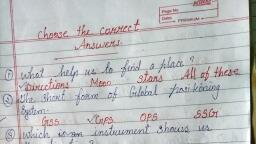 Page No
Date
PREMIUM
choose the correct
Answers.
① What help us to find a place?
Directions Moon Stars All of these
② The short form of Global positioning
System:
GSS GPS OPS SSGI
③ Which is an instrument shows us